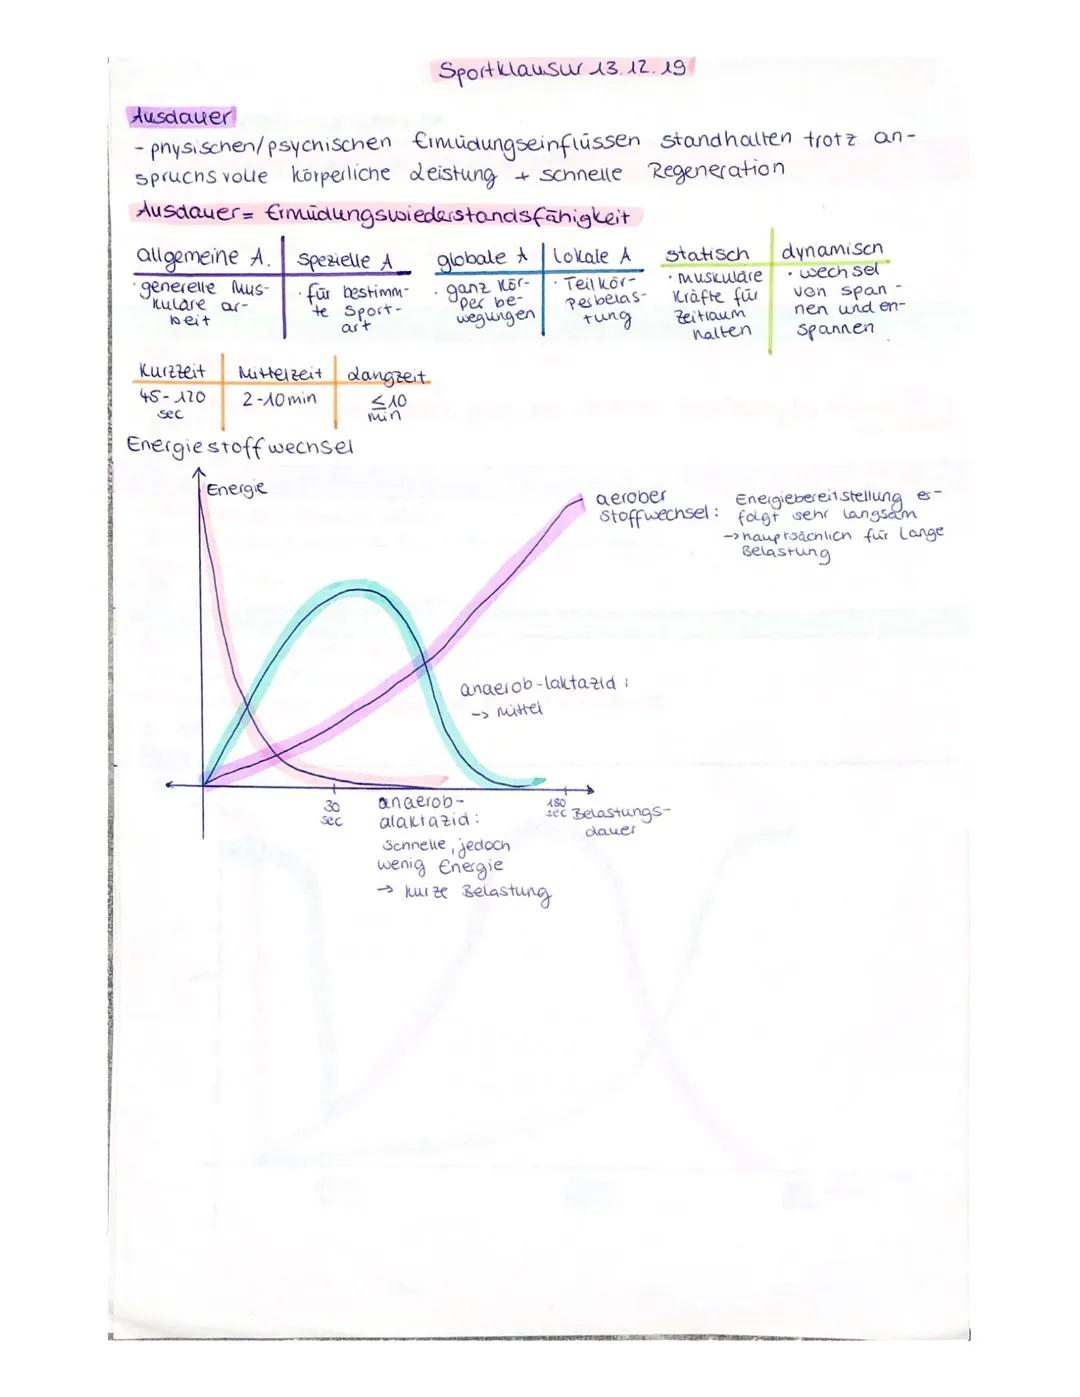 Sportklausur 13.12.19
Ausdauer
- physischen/psychischen Ermüdungseinflüssen standhalten trotz an-
spruchsvolle körperliche Leistung + schnelle Regeneration
Ausdauer = Ermüdungswiederstandsfähigkeit
allgemeine A.
· generelle Mus-
kuläre ar-
beit
spezielle A
· für bestimm-
te Sport-
art
globale A
· ganz Kör-
per be-
wegungen
lokale A
· Teilkör-
perbelas-
tung
statisch
· muskuläre
Kräfte für
Zeitraum
halten
dynamisch
· wechsel
von span-
nen und en-
spannen
Kurzzeit
45-120
sec
Mittelzeit
2-10 min
Langzeit
≤10
min
Energiestoffwechsel
Energie
aerober
stoffwechsel:
Energiebereitstellung er-
folgt sehr langsam
→ hauptsächlich für lange
Belastung
anaerob-laktazid:
→ mittel
30
sec
anaerob-
alaktazid:
schnelle, jedoch
wenig Energie
→ kurze Belastung
180
sec
Belastungs-
dauer